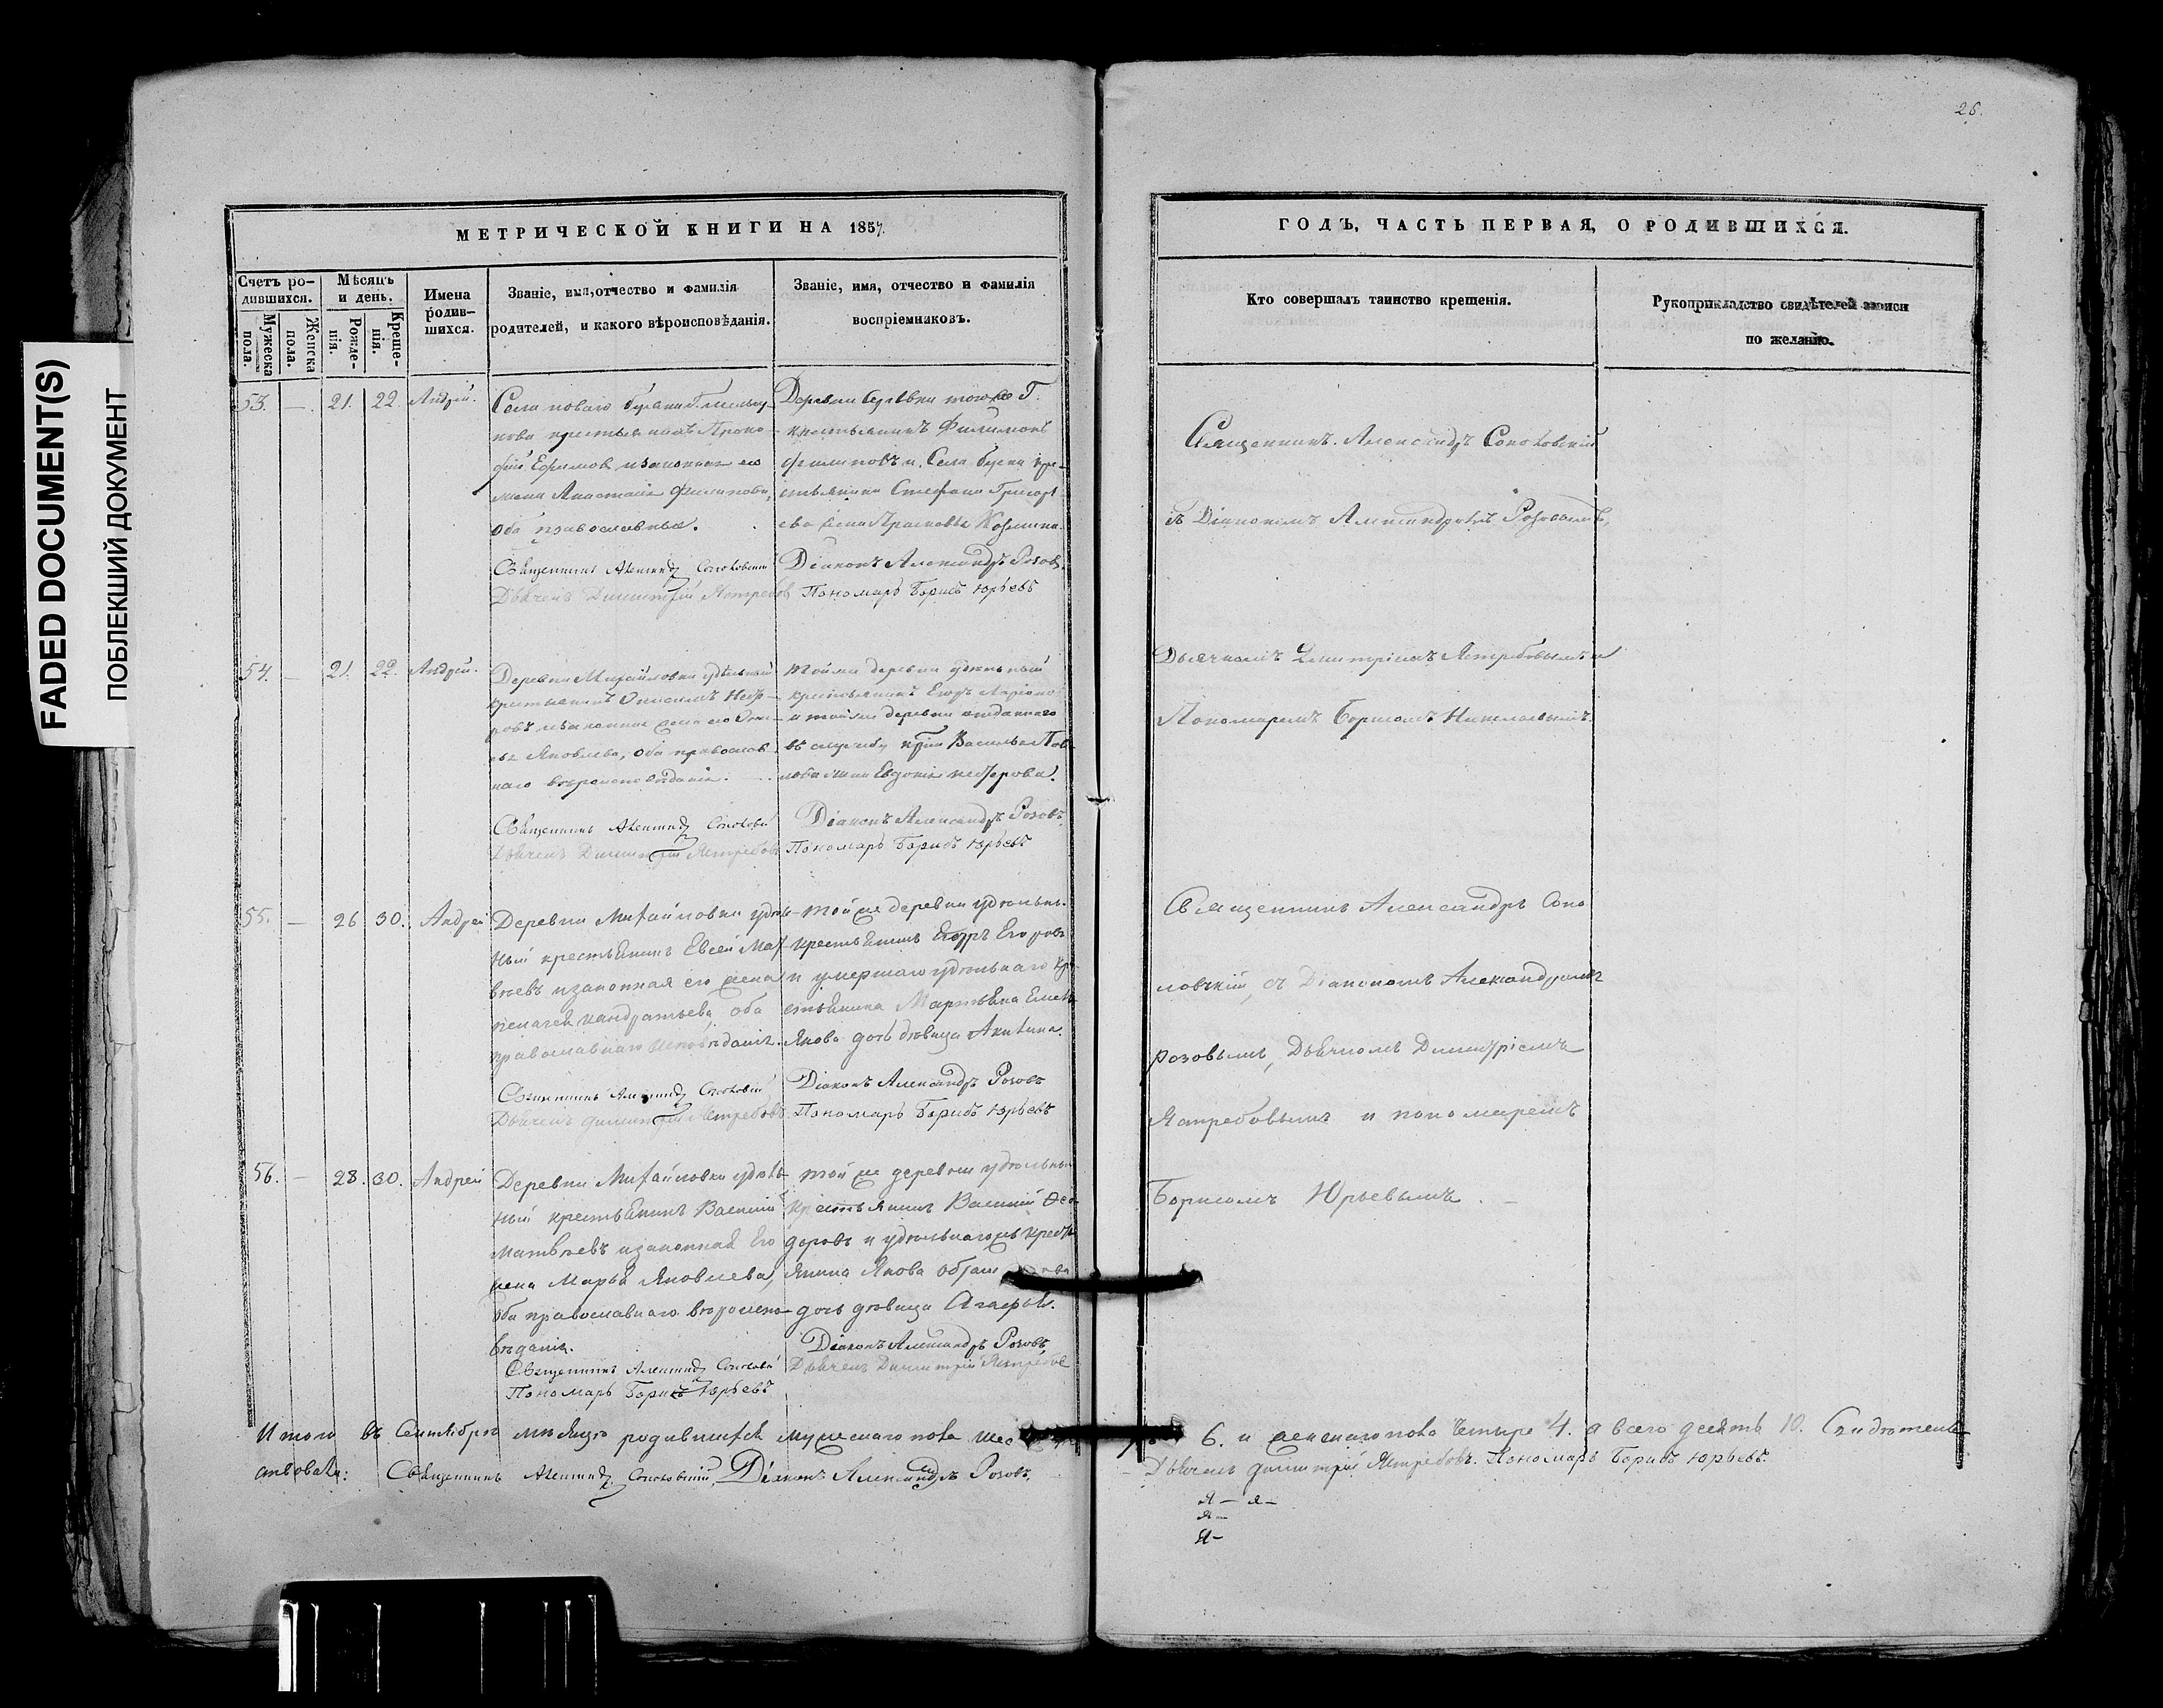 FADED DOCUMENT(S)
ПОБЛЕКШИЙ ДОКУМЕНТ
МЕТРИЧЕСКОЙ КНИГИ НА 1857.
Счетъ ро-
дившихся.
Мужеска
пола.
Женска
пола.
Мѣсяцъ
и день.
Рожде-
нія.
Креще-
нія.
Имена
родив-
шихся.
Званіе, имя, отчество и фамилія
родителей, и какого вѣроисповѣданія.
Званіе, имя, отчество и фамилія
воспріемниковъ.
53. — 21. 22. Андрей.
Села
крестьянинъ Проко-
фій Ефимовъ и законная его
жена Анастасія Филипова,
оба православные.
Священникъ Александръ Соколовскій
Дьячекъ Димитрій Ястребовъ
Деревни
крестьянинъ Филимонъ
Филиповъ и Села кре-
стьянина Стефана Григорь-
ева жена
Діаконъ Александръ Розовъ.
Пономарь Борисъ Юрьевъ
54. — 21. 22. Андрей.
Деревни Михайловки удѣльный
крестьянинъ
законная жена его
Яковлева, оба православ-
наго вѣроисповѣданія.
Священникъ Александръ Соколовскій
Дьячекъ Димитрій Ястребовъ
Той же деревни удѣльный
крестьянинъ Егоръ
и той же деревни отданнаго
въ службу Василья
жена Евдокія
Діаконъ Александръ Розовъ.
Пономарь Борисъ Юрьевъ
55. — 26 30. Андрей
Деревни Михайловки удѣль-
ный крестьянинъ Евсей Мат-
вѣевъ и законная его жена
Пелагея Кандратьева, оба
православнаго исповѣданія.
Священникъ Александръ Соколовскій
Дьячекъ Димитрій Ястребовъ
той же деревни удѣльны.
крестьянинъ Егоръ Егоровъ
и умершаго удѣльнаго кре-
стьянина Мартьяна Емель-
янова дочь дѣвица Акилина.
Діаконъ Александръ Розовъ
Пономарь Борисъ Юрьевъ
56. — 28. 30. Андрей
Деревни Михайловки удѣль-
ный крестьянинъ Василій
Матвѣевъ и законная Его
жена Марья Яковлева,
оба православнаго вѣроиспо-
вѣданія.
Священникъ Александръ Соколовскій
Пономарь Борисъ Юрьевъ
той же деревни удѣльны
крестьянинъ Василій Ѳео-
доровъ и удѣльнаго крестъ-
янина Якова
дочь дѣвица Агафья.
Діаконъ Александръ Розовъ
Дьячекъ Димитрій Ястребовъ
Итого въ Сентябрѣ мѣсяцѣ родившихся мужескаго пола шес
ствовали: Священникъ Александръ Соколовскій, Діаконъ Александръ Розовъ,
26.
ГОДЪ, ЧАСТЬ ПЕРВАЯ, О РОДИВШИХСЯ.
Кто совершалъ таинство крещенія.
Рукоприкладство свидѣтелей записи
по желанію.
Священникъ Александръ Соколовскій
съ Діакономъ Александромъ Розовымъ,
Дьячкомъ Димитріемъ Ястребовымъ и
Пономаремъ Борисомъ
Священникъ Александръ Соко
ловскій, съ Діакономъ Александромъ
Розовымъ, Дьячкомъ Димитріемъ
Ястребовымъ и пономаремъ
Борисомъ Юрьевымъ.
6. и женскаго пола четыре 4. а всего десять 10. Свидѣтель-
Дьячекъ Димитрій Ястребовъ. Пономарь Борисъ Юрьевъ.